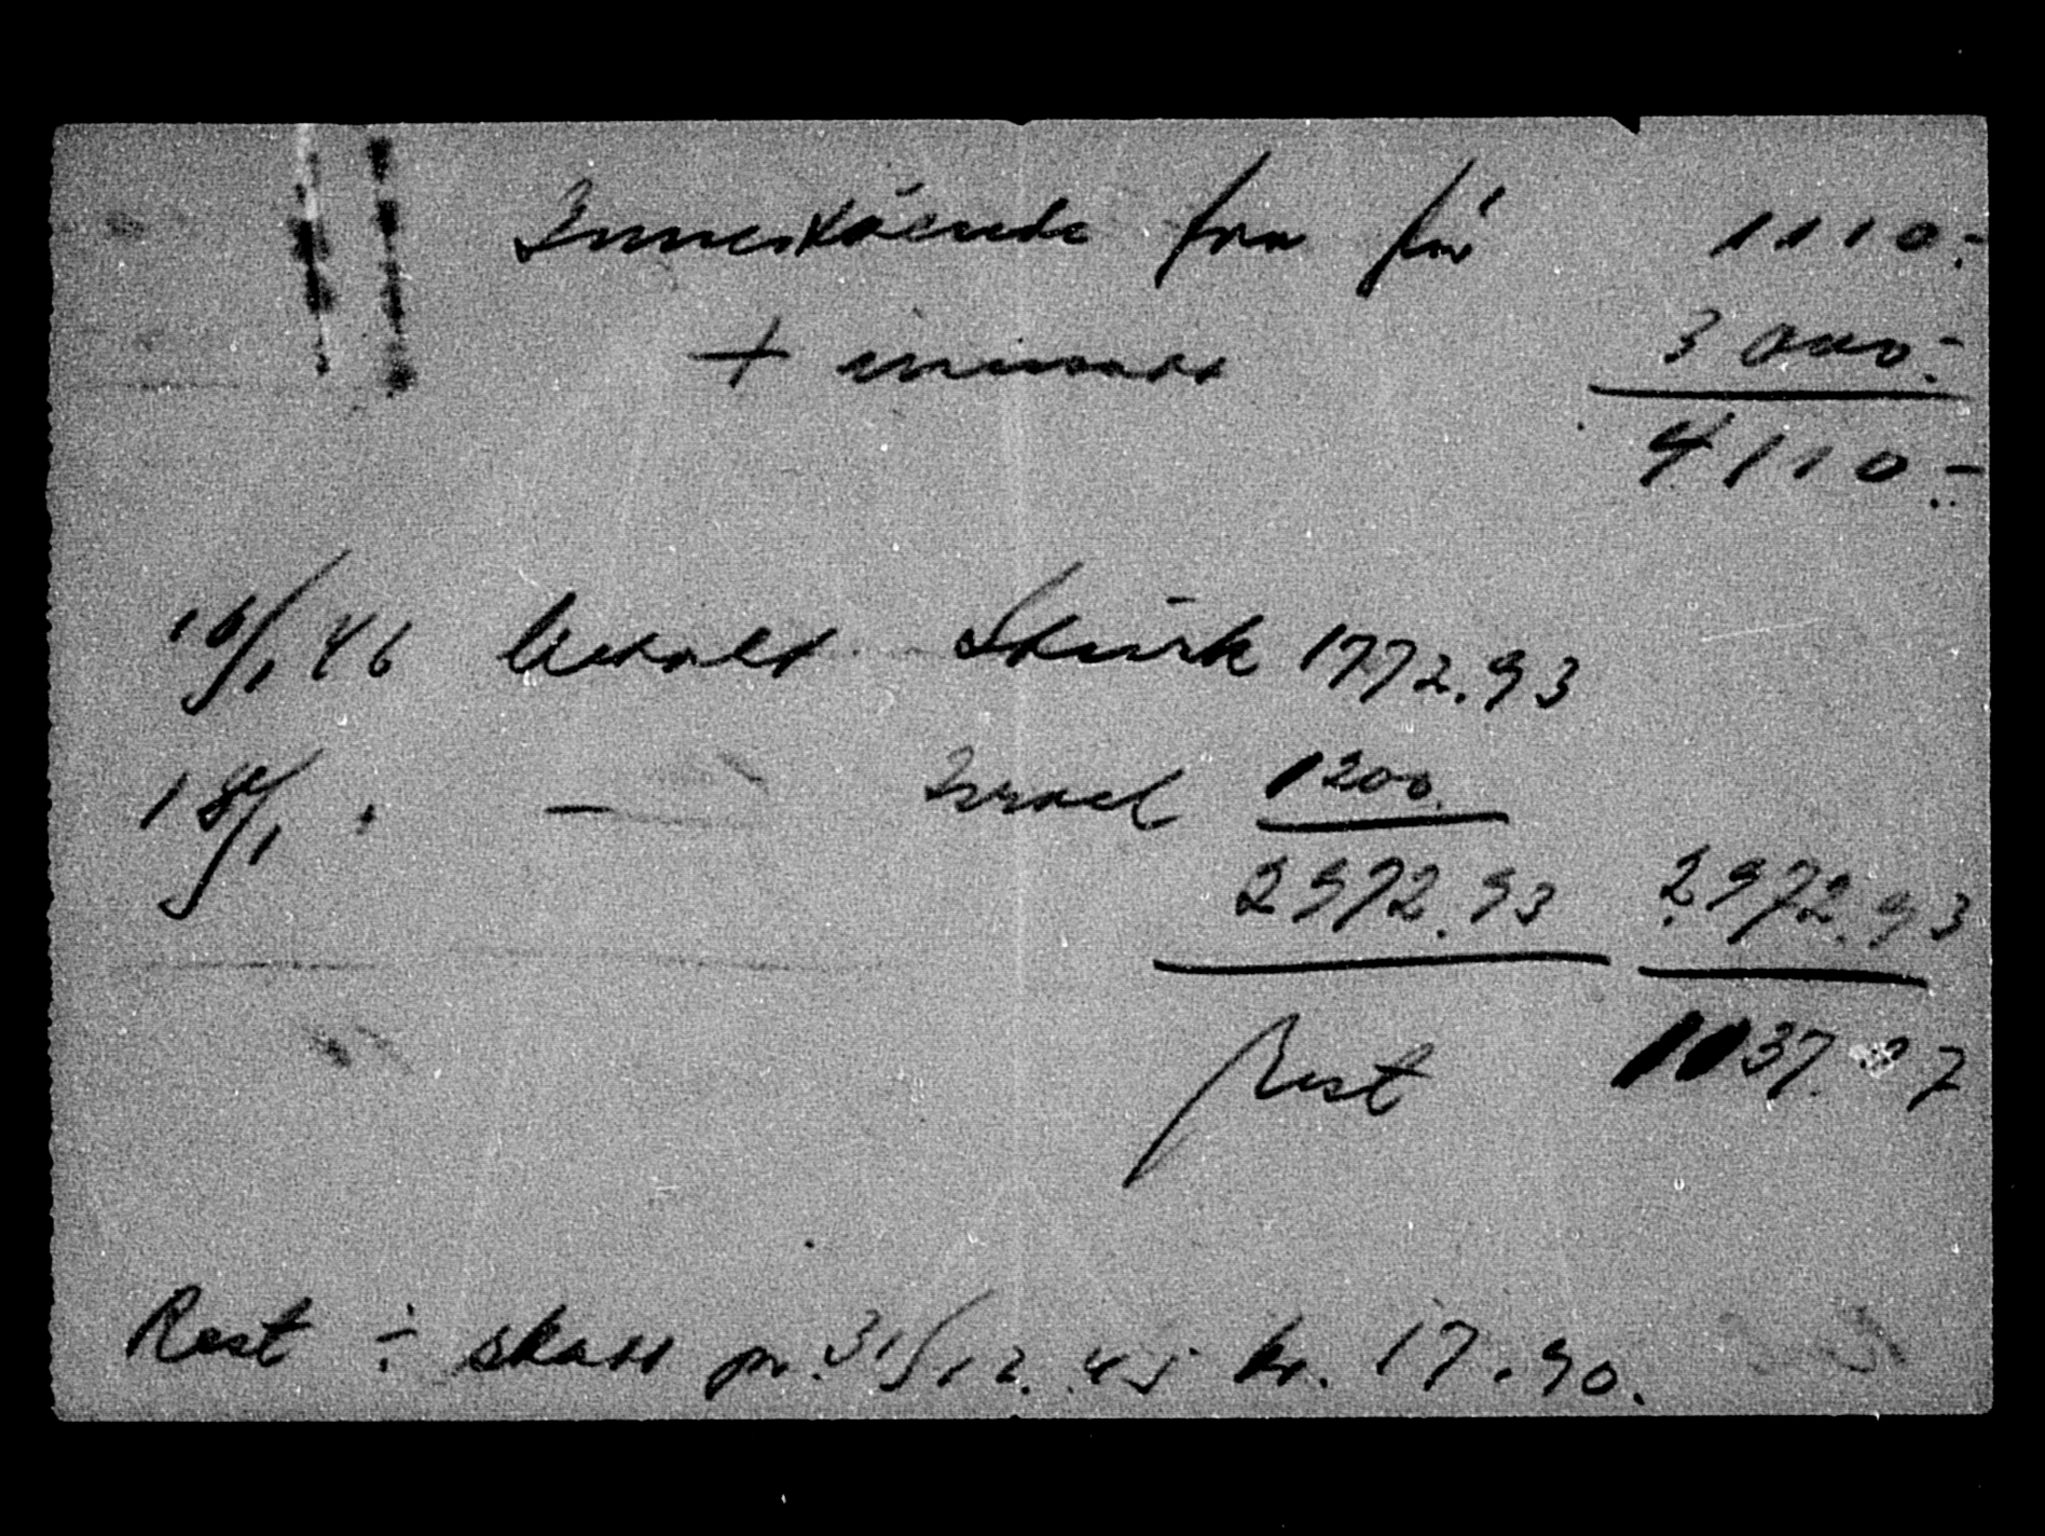 Innestående fra før 1110.-
+ innsatt 3000.-
4110.-
16/1 46 betalt Skúrk 1772.93
18/1 " — Israel 1200.
2972.93 2972.93
Rest 1137.07
Rest ÷ skatt pr. 31/12.45 kr. 17.90.